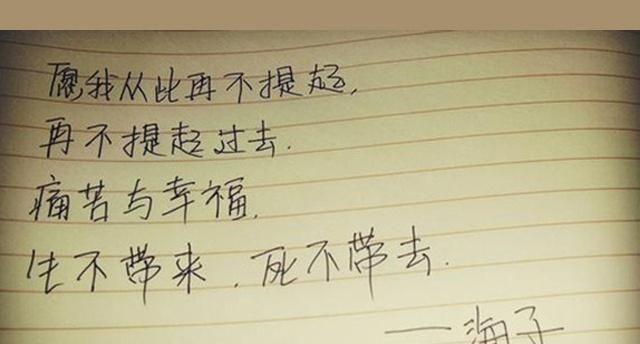 愿我从此再不提起,
再不提起过去.
痛苦与幸福.
生不带来.死不带去.
——海子